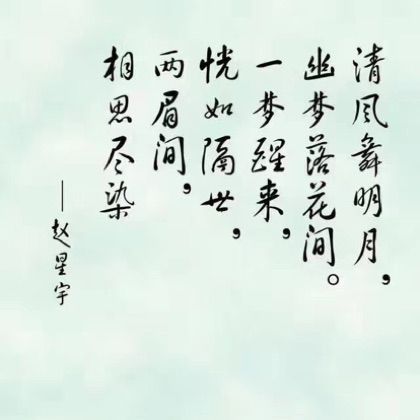 清风舞明月，
幽梦落花间。
一梦醒来，
恍如隔世，
两眉间，
相思尽染
——赵星宇